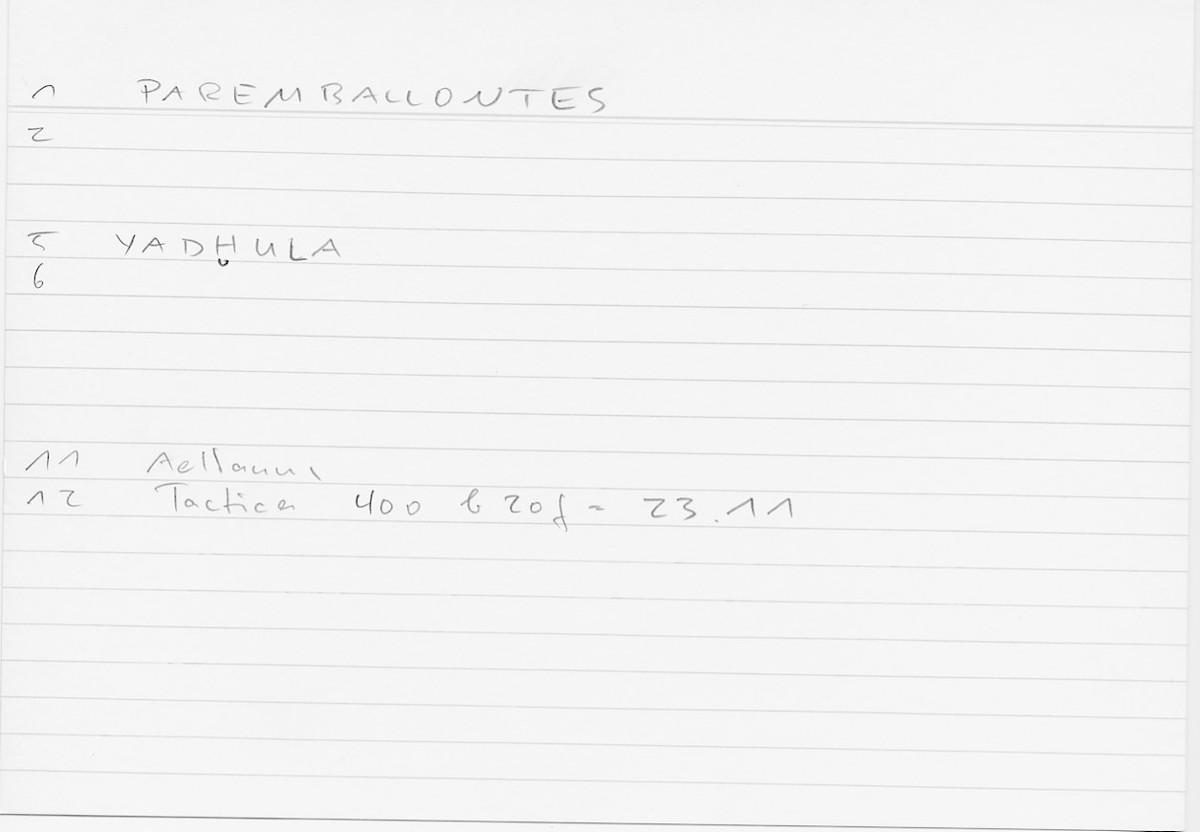 1 PAREMBALLONTES
2
5 YADḪULA
6
11 Aelianus
12 Tactica 400 b 20f = 23.11